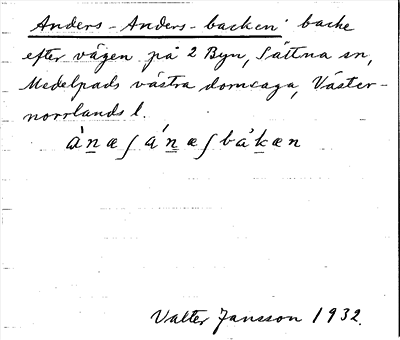 Anders-Anders-backen backe
efter vägen på 2 Byn, Sättna sn,
Medelpads västra domsaga, Väster-
norrlands l.
Valter Jansson 1932.